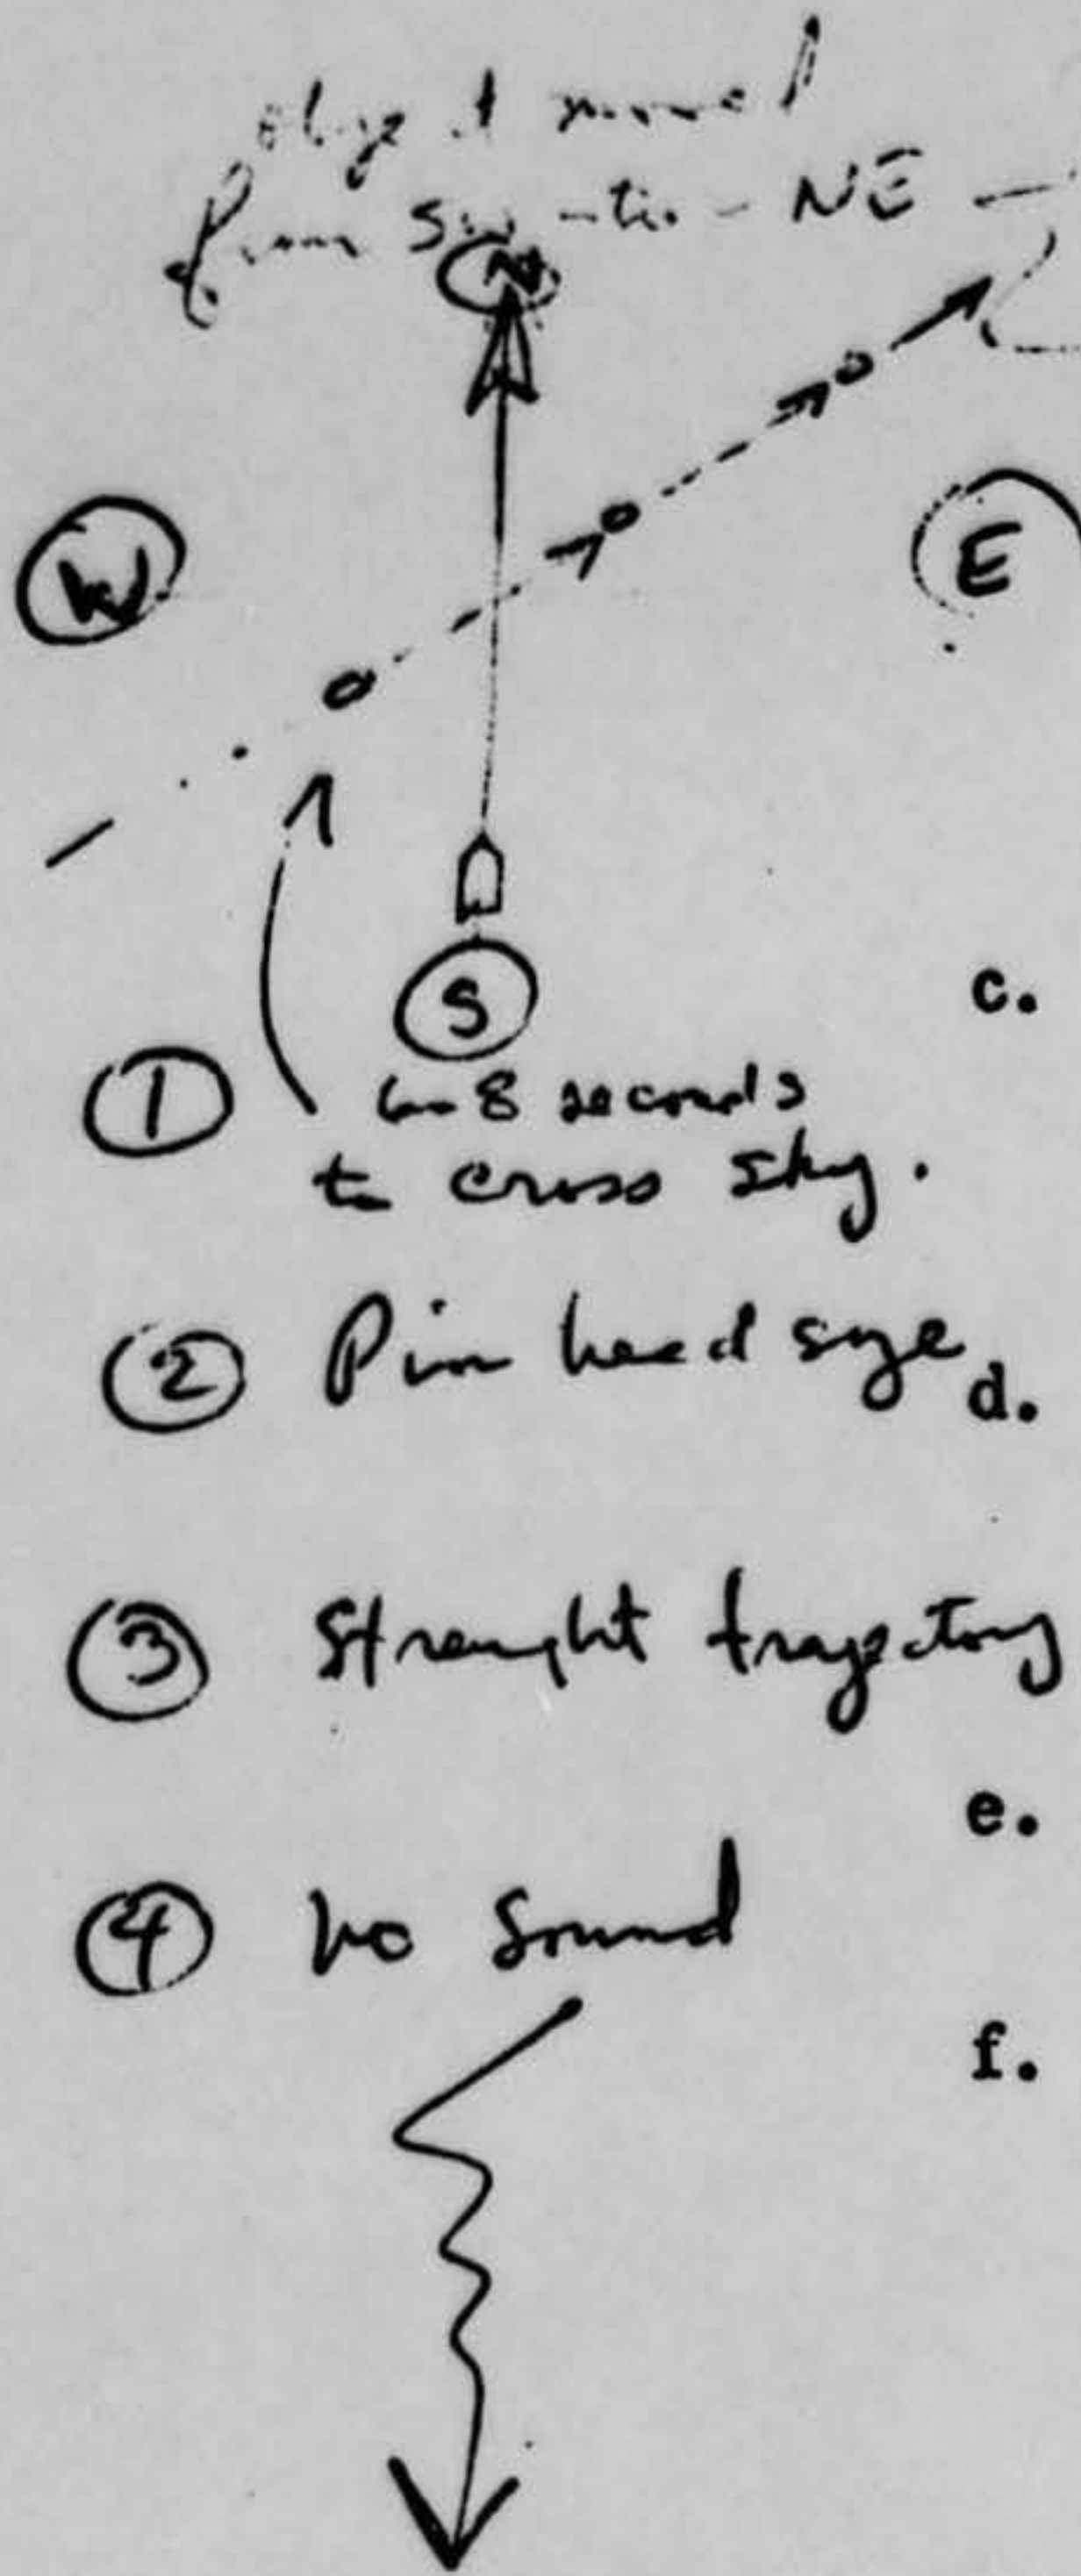 object moved
from SW to NE
N
W
E
S
c.
① 6-8 seconds
to cross sky.
② Pin head size
d.
③ Straight trajectory
e.
④ No Sound
f.